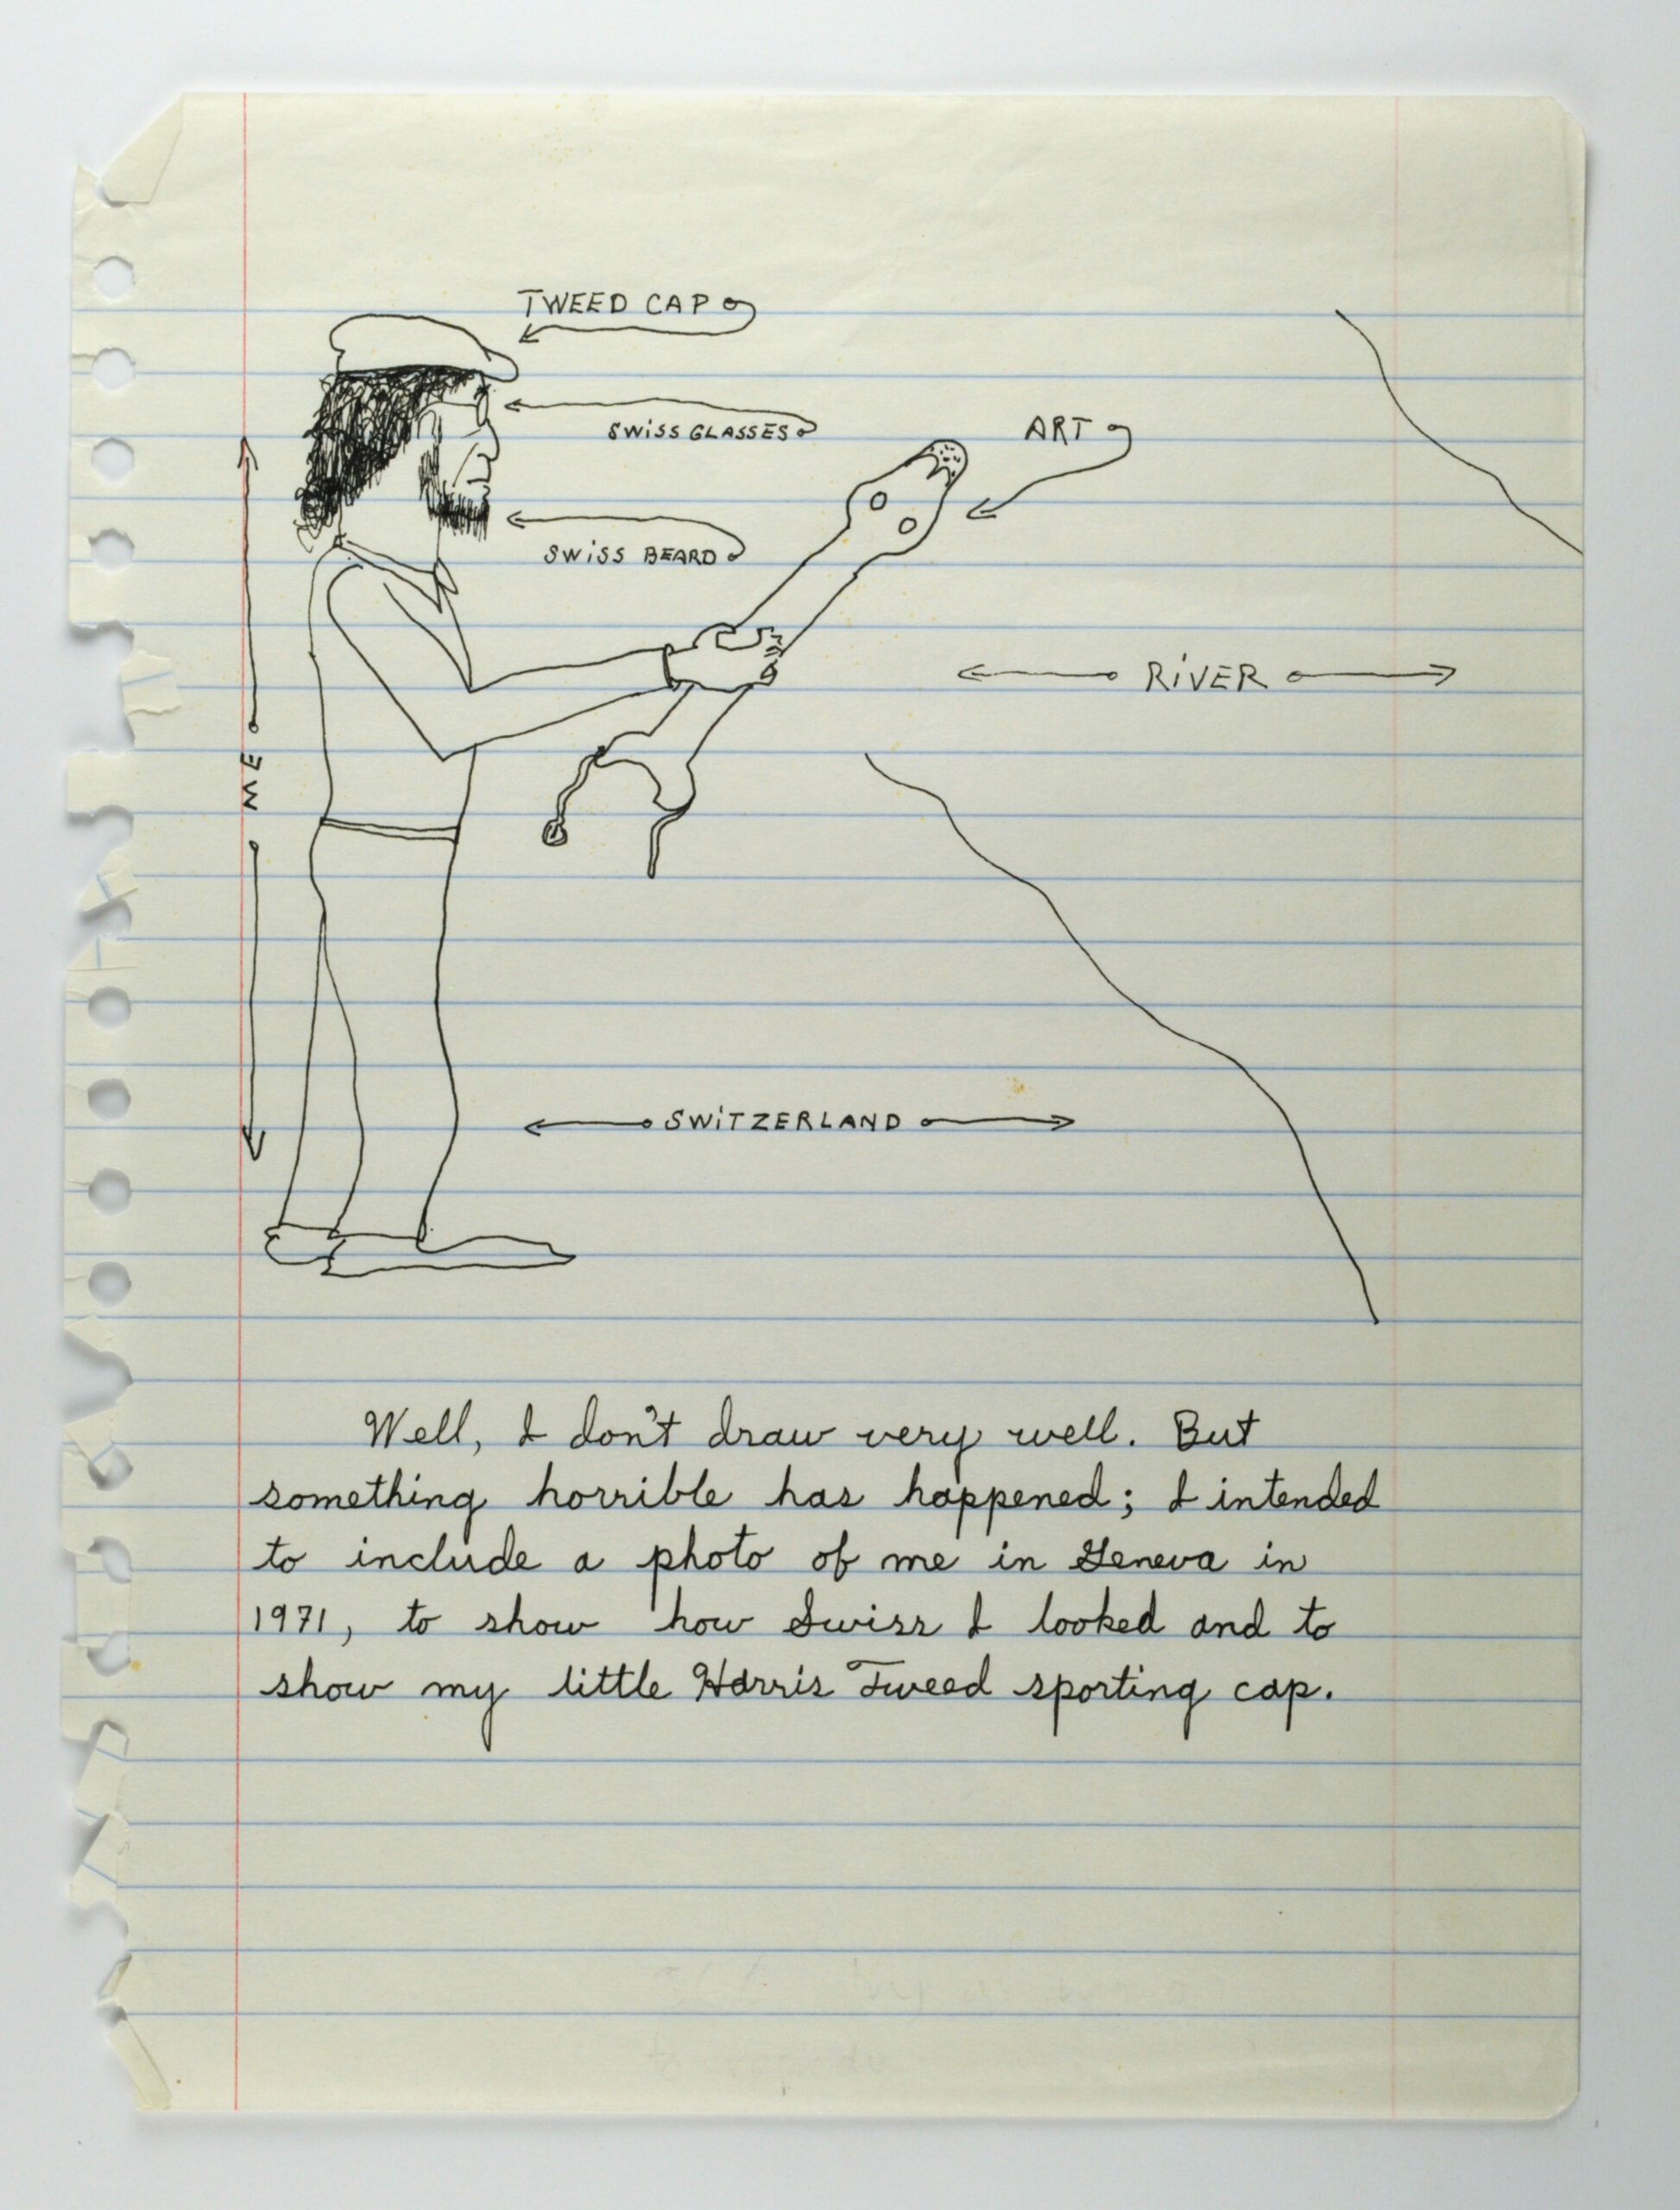 TWEED CAP
SWISS GLASSES
ART
SWISS BEARD
RIVER
ME
SWITZERLAND
Well, I don't draw very well. But
something horrible has happened; I intended
to include a photo of me in Geneva in
1971, to show how Swiss I looked and to
show my little Harris Tweed sporting cap.